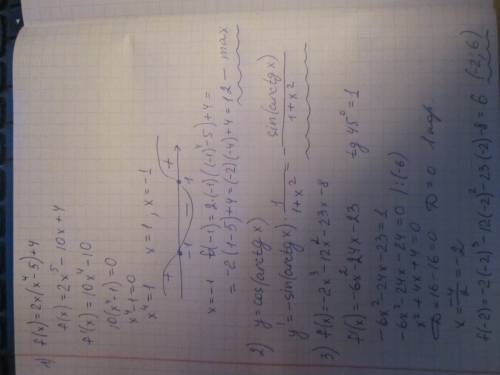 1) f(x) = 2x(x⁴-5)+4
f(x) = 2x⁵ - 10x + 4
f'(x) = 10x⁴ - 10
10(x⁴-1) = 0
x⁴-1=0
x⁴=1 x=1, x=-1
+ -1 - 1 +
x=-1 f(-1) = 2·(-1)((-1)⁴-5)+4 =
= -2(1-5)+4 = (-2)(-4)+4 = 12 - max
2) y = cos(arctg x)
y' = -sin(arctg x) · 1/(1+x²) = - sin(arctg x)/(1+x²)
3) f(x) = -2x³-12x²-23x-8
f'(x) = -6x²-24x-23 tg 45° = 1
-6x²-24x-23=1
-6x²-24x-24=0 |:(-6)
x²+4x+4=0
D=16-16=0 D=0 1 кор
x = -4/2 = -2
f(-2) = -2(-2)³-12(-2)²-23(-2)-8 = 6 (-2;6)